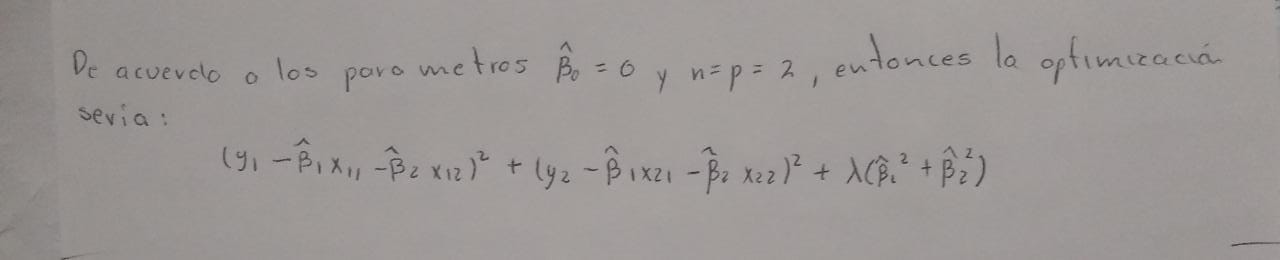 De acuerdo a los parametros β̂₀ = 0 y n=p=2, entonces la optimización
seria:
(y₁ - β̂₁x₁₁ - β̂₂x₁₂)² + (y₂ - β̂₁x₂₁ - β̂₂x₂₂)² + λ(β̂₁² + β̂₂²)